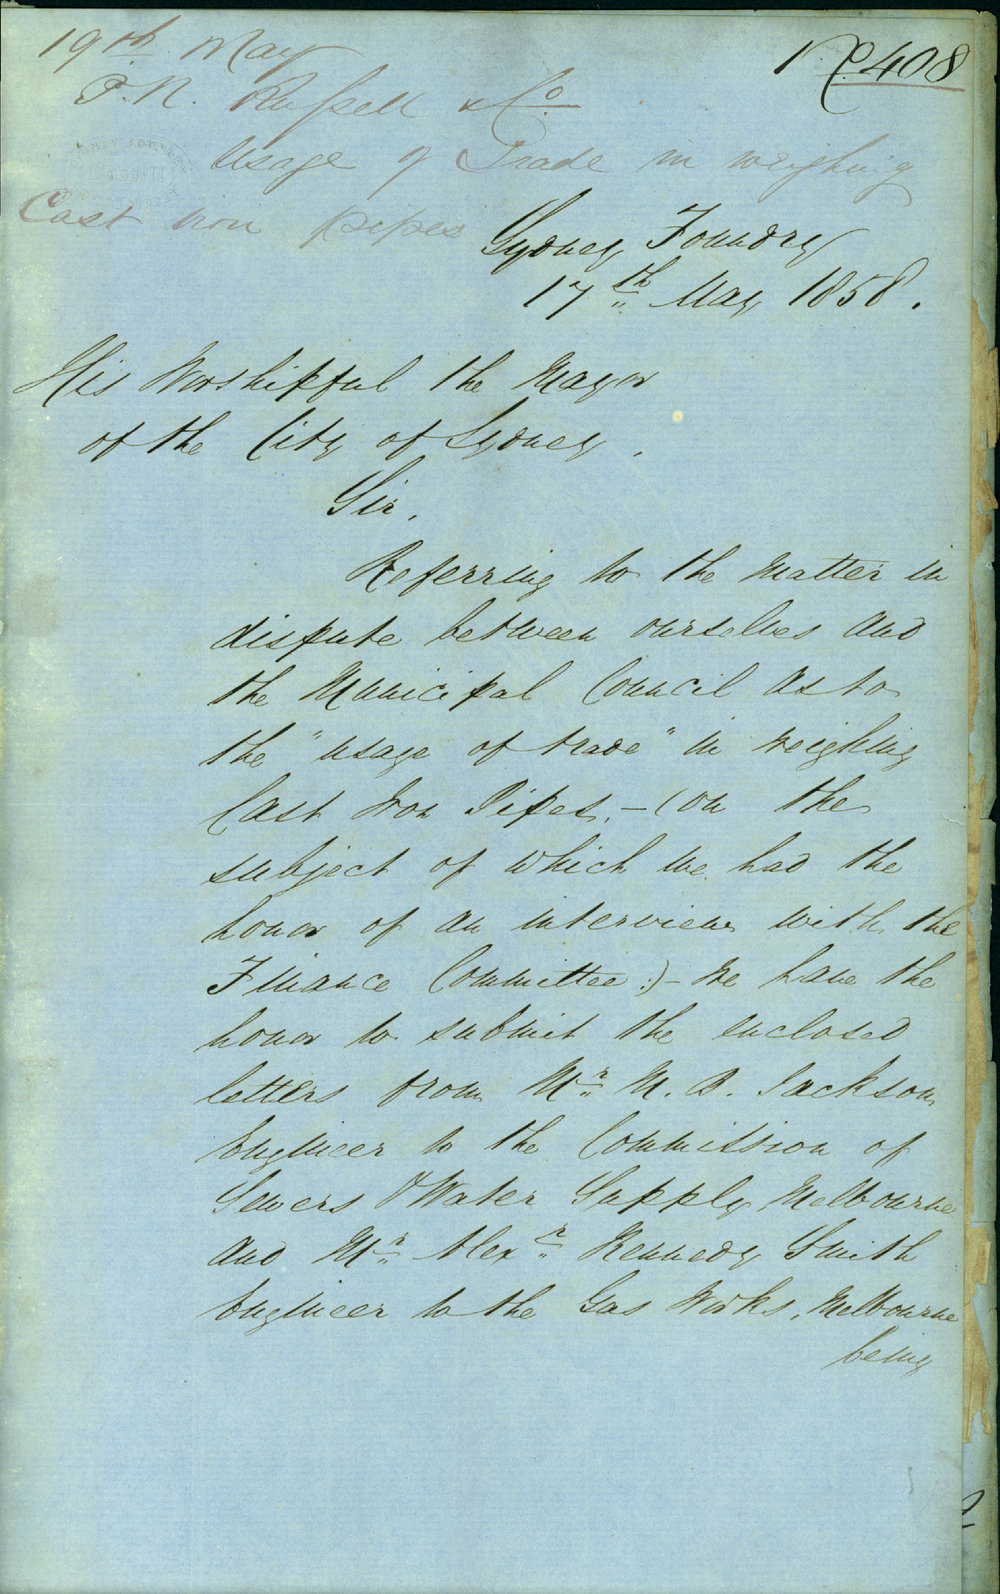 19th May
No 408
P.N. Russell & Co
Usage of Trade in weighing
Cast iron pipes
Sydney Foundry
17th May 1858.
His Worshipful the Mayor
of the City of Sydney.
Sir,
Referring to the Matter in
dispute between ourselves and
the Municipal Council as to
the "usage of trade" in weighing
Cast Iron Pipes, - (on the
subject of which we had the
honor of an interview with the
Finance Committee:) - We have the
honor to submit the enclosed
letters from Mr. M. B. Jackson
Engineer to the Commission of
Sewers & Water Supply, Melbourne
and Mr. Alexr. Kennedy Smith
Engineer to the Gas Works, Melbourne
being